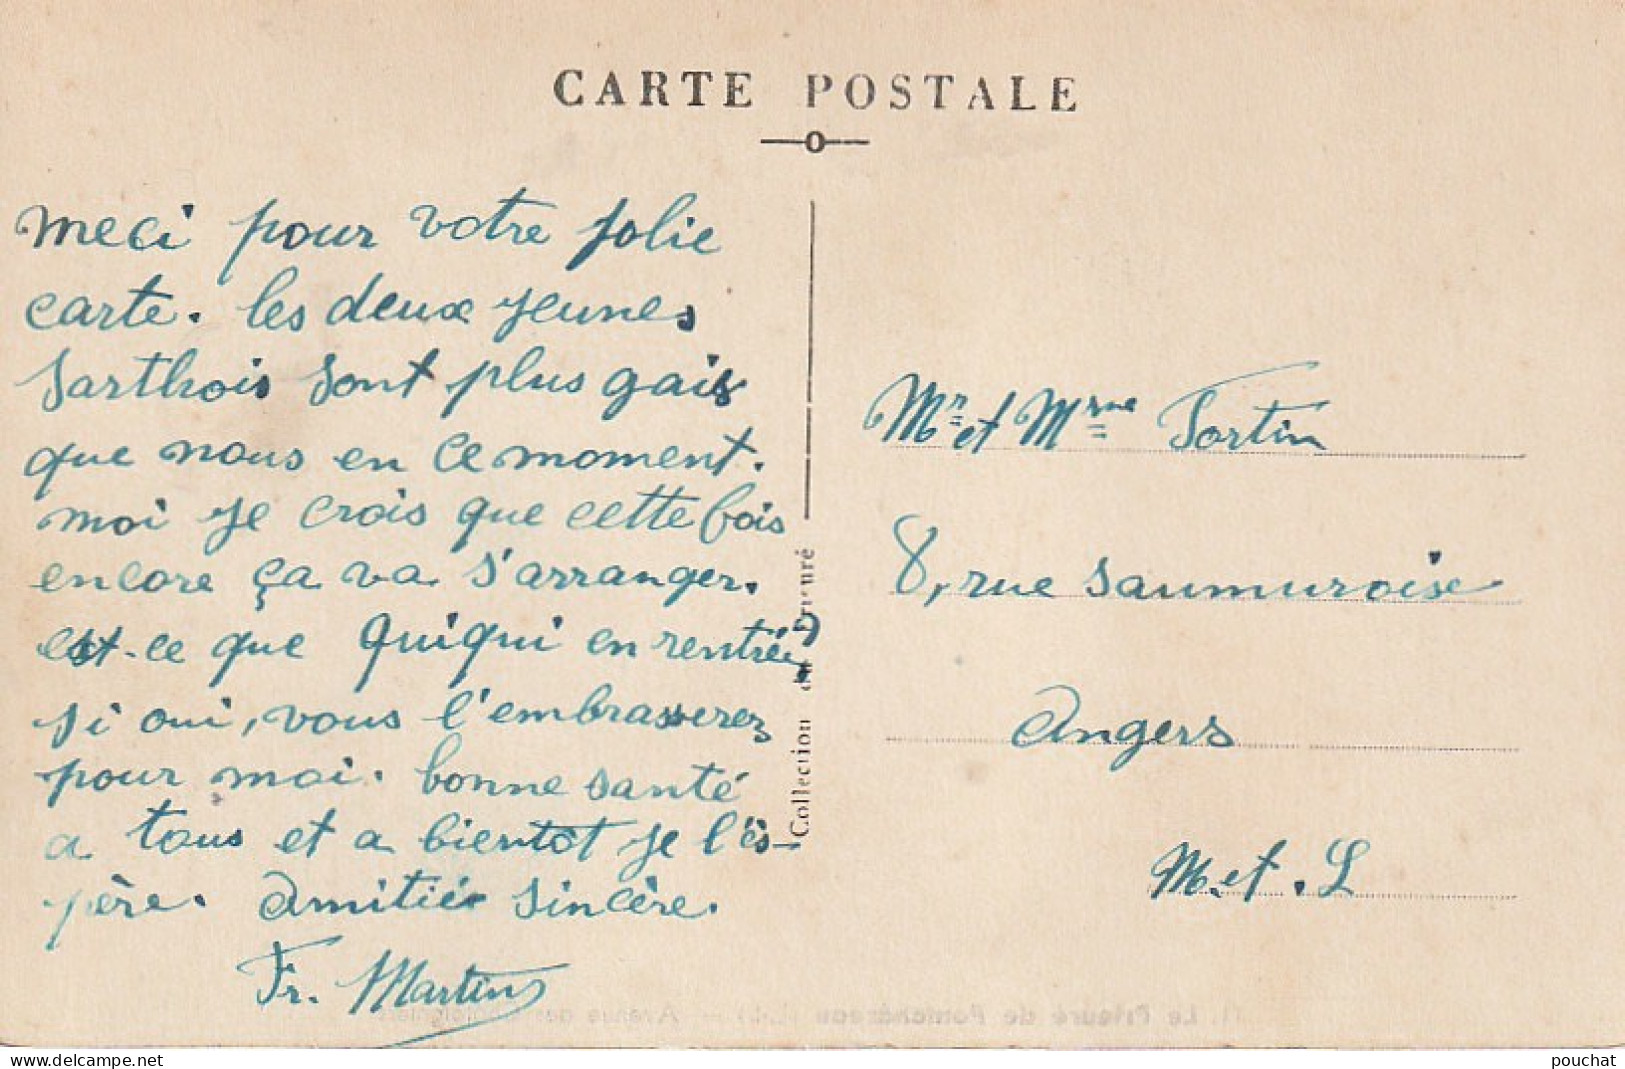 CARTE POSTALE
meci pour votre jolie
carte. les deux jeunes
Sarthois sont plus gais
que nous en ce moment.
moi je crois que cette fois
encore ça va s'arranger.
est-ce que Quiqui en rentrée,
si oui, vous l'embrasserez
pour moi. bonne santé
a tous et a bientôt je l'és-
père. Amitiée sincère.
Fr. Martin
Collection du Prieuré
Mr et Mme Fortin
8, rue Saumuroise
Angers
M. et . L
11. Le Prieuré de Pontchâteau (L.-I.) — Avenue des
pouchat